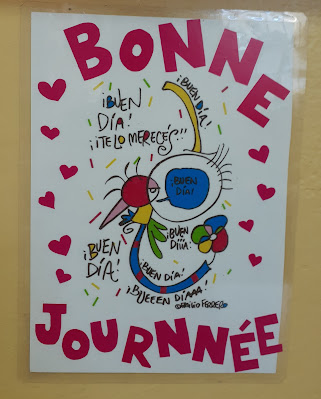 BONNE
¡BUEN
DÍA!
¡¡TE LO MERECÉS!!
¡BUEN DÍA!
¡BUEN
DÍA!
¡BUEN
DÍIIA!
¡BUEN
DÍA!
¡BUEN DÍA!
¡BUEEEN DÍAAA!
JOURNNÉE